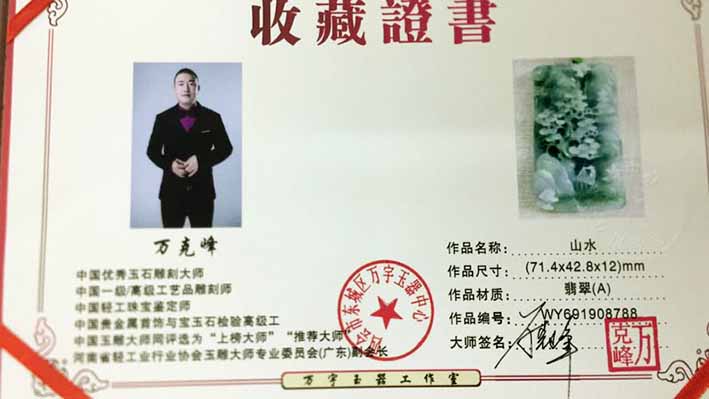 收藏證書
万克峰
中国优秀玉石雕刻大师
中国一级/高级工艺品雕刻师
中国轻工珠宝鉴定师
中国贵金属首饰与宝玉石检验高级工
中国玉雕大师网评选为“上榜大师”“推荐大师”
河南省轻工业行业协会玉雕大师专业委员会(广东)副会长
作品名称: 山水
作品尺寸: (71.4x42.8x12)mm
作品材质: 翡翠(A)
作品编号: WY691908788
大师签名: 万克峰
万克峰
四会市东城区万宇玉器中心
万宇玉器工作室